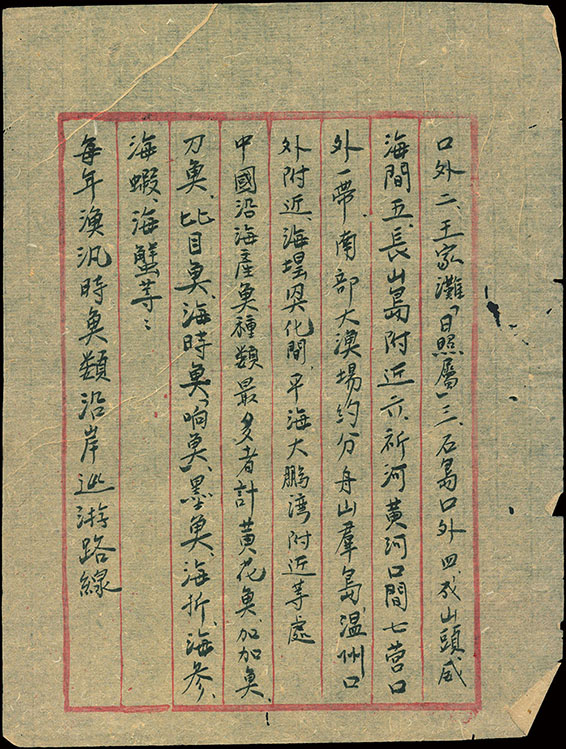 口外二、王家灘「日照屬」三、石島口外四成山頭威
海間五、長山島附近六、祈河黃河口間七營口
外一帶、南部大漁場約分舟山羣島、溫州口
外附近、海壇興化間、平海大鵬湾附近等處
中國沿海產魚種類最多者計黃花魚、加加魚、
刀魚、比目魚、海時魚、「响魚」、墨魚、海折、海參、
海蝦、海蟹等:
每年漁汎時魚類沿岸巡游路線